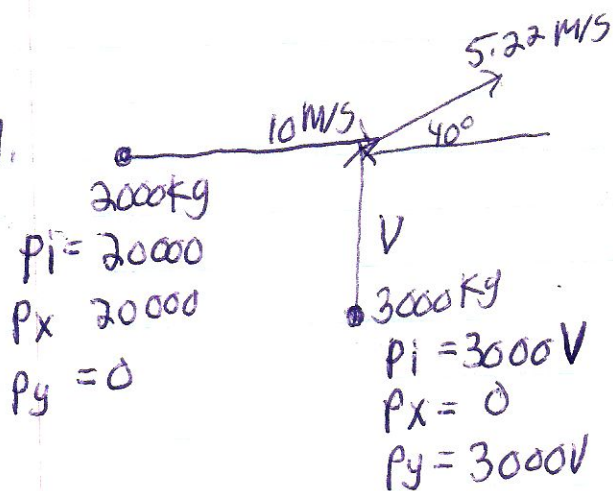 5.22 M/S
10 M/S
40°
2000kg
Pi = 20000
Px 20000
Py = 0
V
3000kg
Pi = 3000V
Px = 0
Py = 3000V